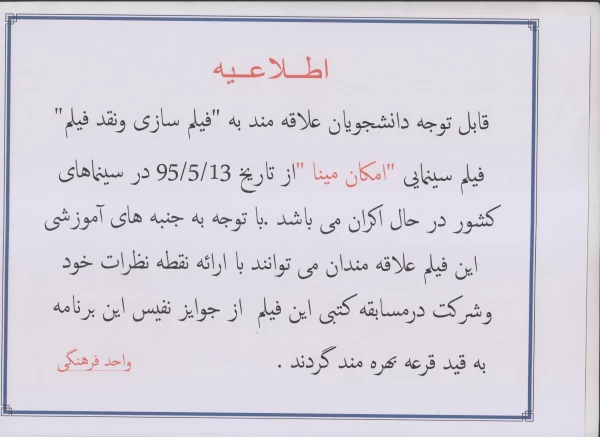 اطـلاعـیه
قابل توجه دانشجویان علاقه مند به "فیلم سازی ونقد فیلم"
فیلم سینمایی "امکان مینا "از تاریخ 95/5/13 در سینماهای
کشور در حال اکران می باشد .با توجه به جنبه های آموزشی
این فیلم علاقه مندان می توانند با ارائه نقطه نظرات خود
وشرکت درمسابقه کتبی این فیلم از جوایز نفیس این برنامه
به قید قرعه بهره مند گردند .
واحد فرهنگی